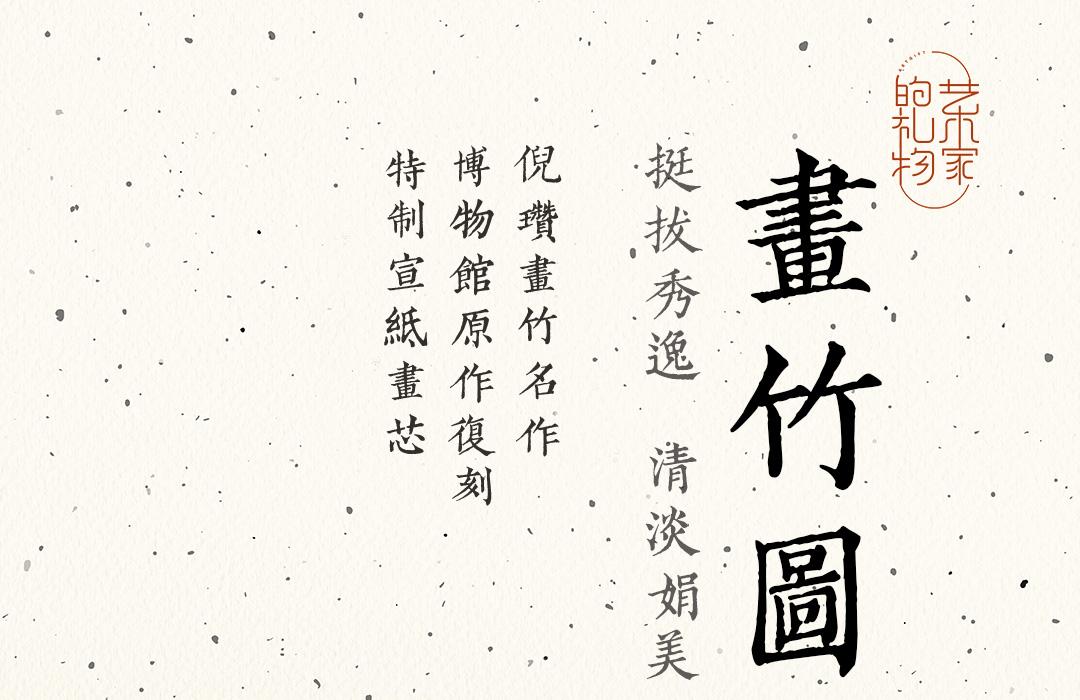 艺术家
的礼物
畫竹圖
挺拔秀逸 清淡娟美
倪瓚畫竹名作
博物館原作復刻
特制宣紙畫芯